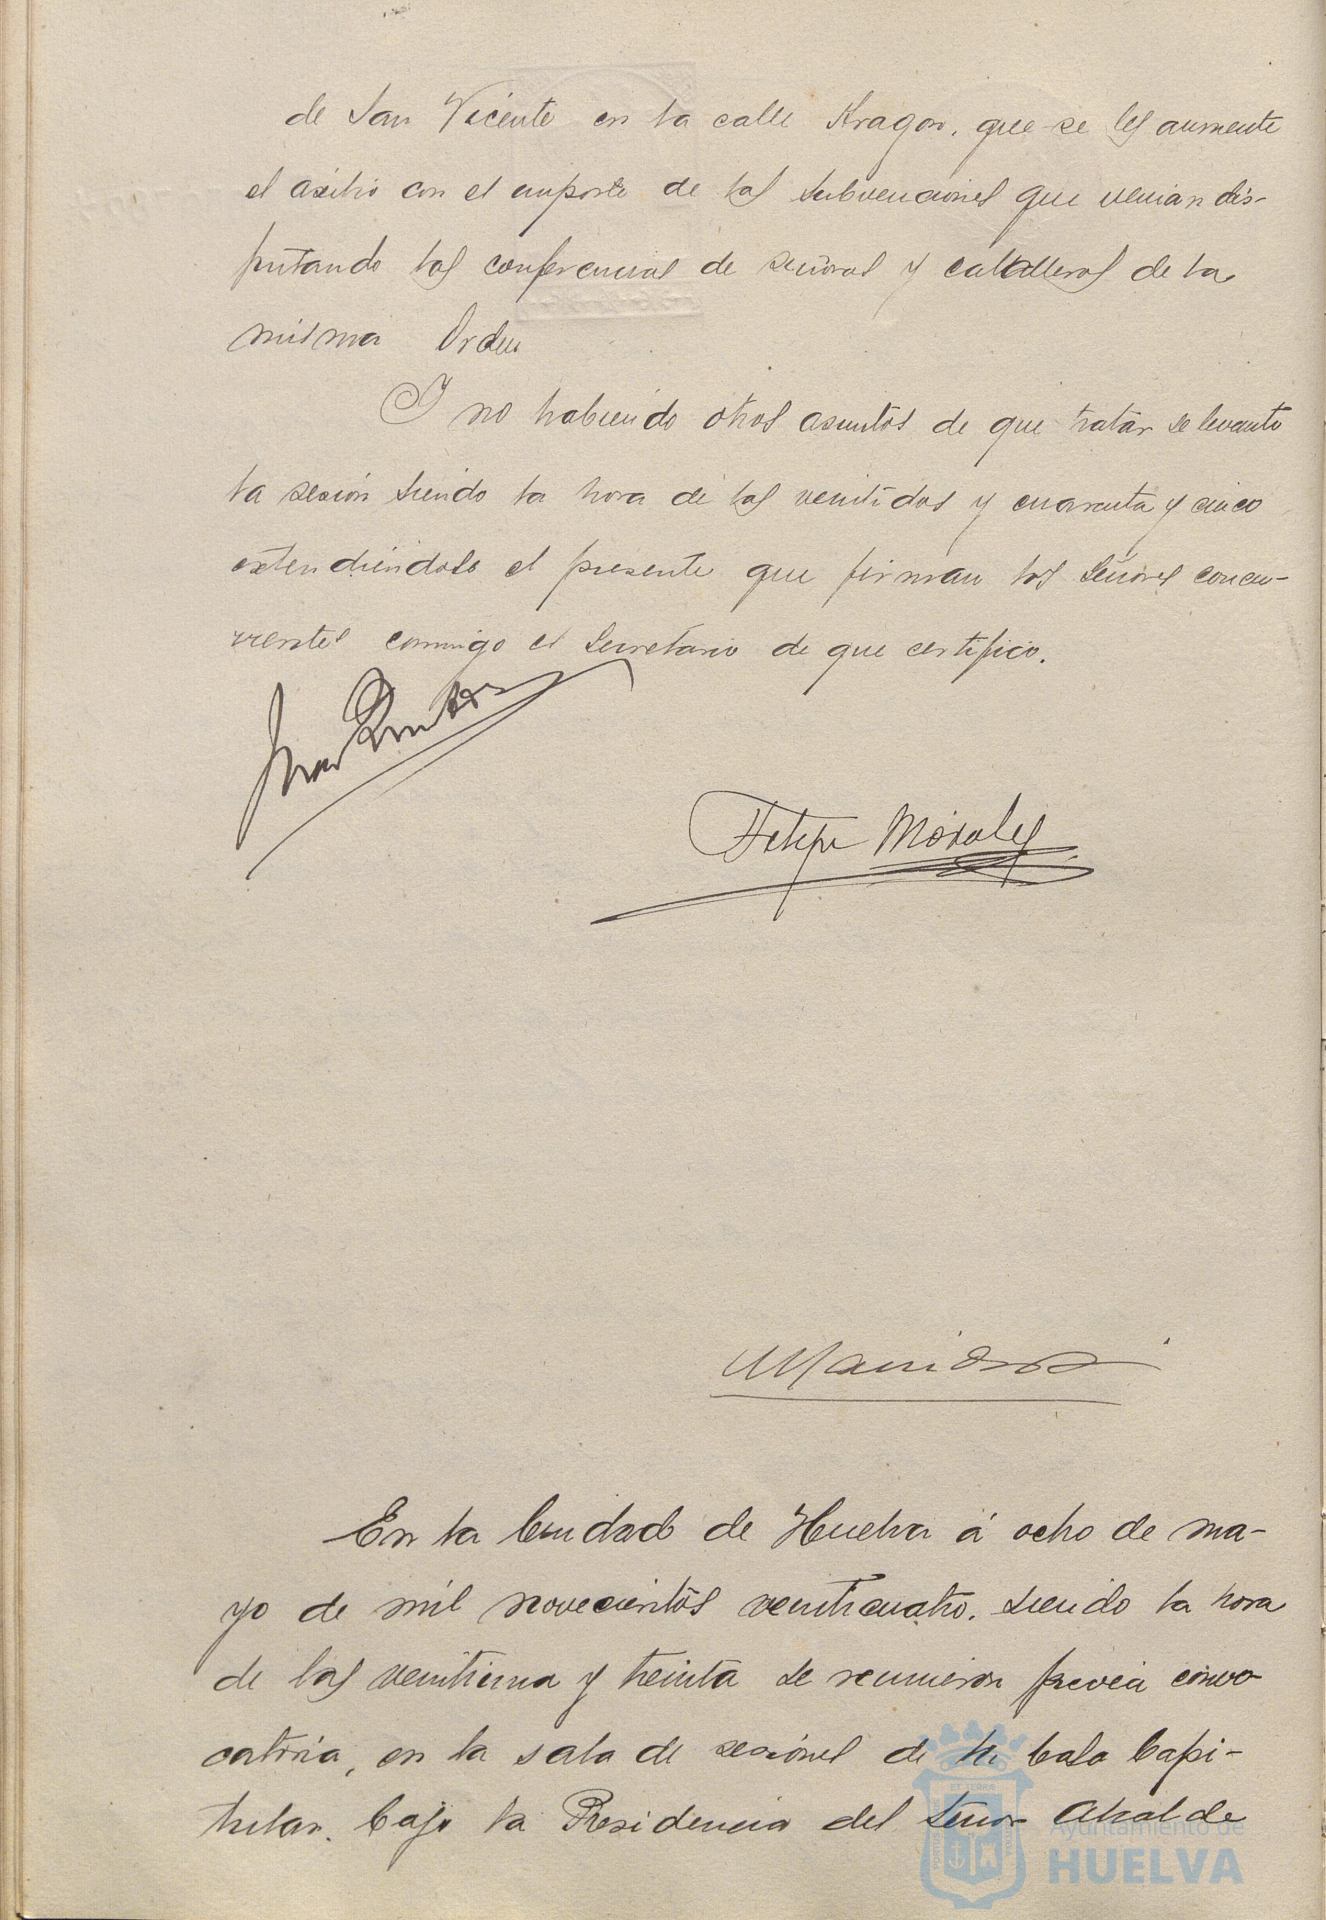 de San Vicente en la calle Aragon, que se les aumente
el asilio con el importe de las subvenciones que venian dis-
frutando las conferencias de señoras y caballeros de la
misma Orden
Y no habiendo otros asuntos de que tratar se levanto
la sesión siendo la hora de las veintidos y cuarenta y cinco
extendiéndose el presente que firman los Señores concu-
rrentes conmigo el Secretario de que certifico.
Felipe Morales
En la Ciudad de Huelva á ocho de ma-
yo de mil novecientos veinticuatro, siendo la hora
de las veintiuna y treinta se reunieron previa convo-
catoria, en la sala de sesiones de la Casa Capi-
tular, bajo la Presidencia del Señor Alcalde
Ayuntamiento de
HUELVA